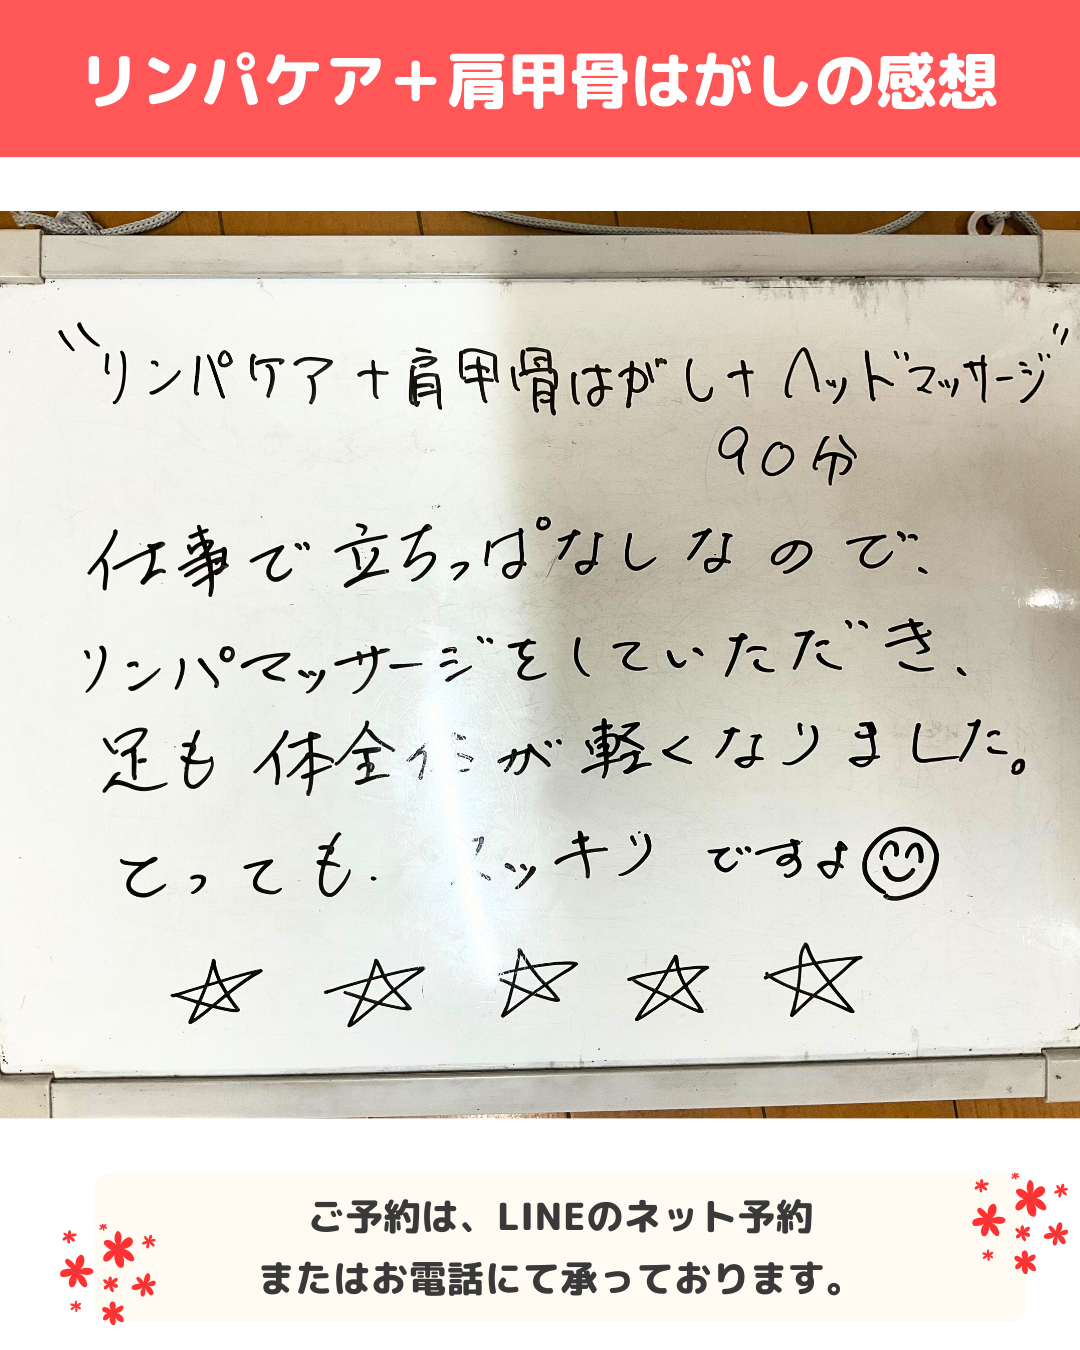 リンパケア＋肩甲骨はがしの感想
"リンパケア+肩甲骨はがし+ヘッドマッサージ"
90分
仕事で立ちっぱなしなので、
リンパマッサージをしていただき、
足も体全体が軽くなりました。
とっても、スッキリですよ
ご予約は、LINEのネット予約
またはお電話にて承っております。